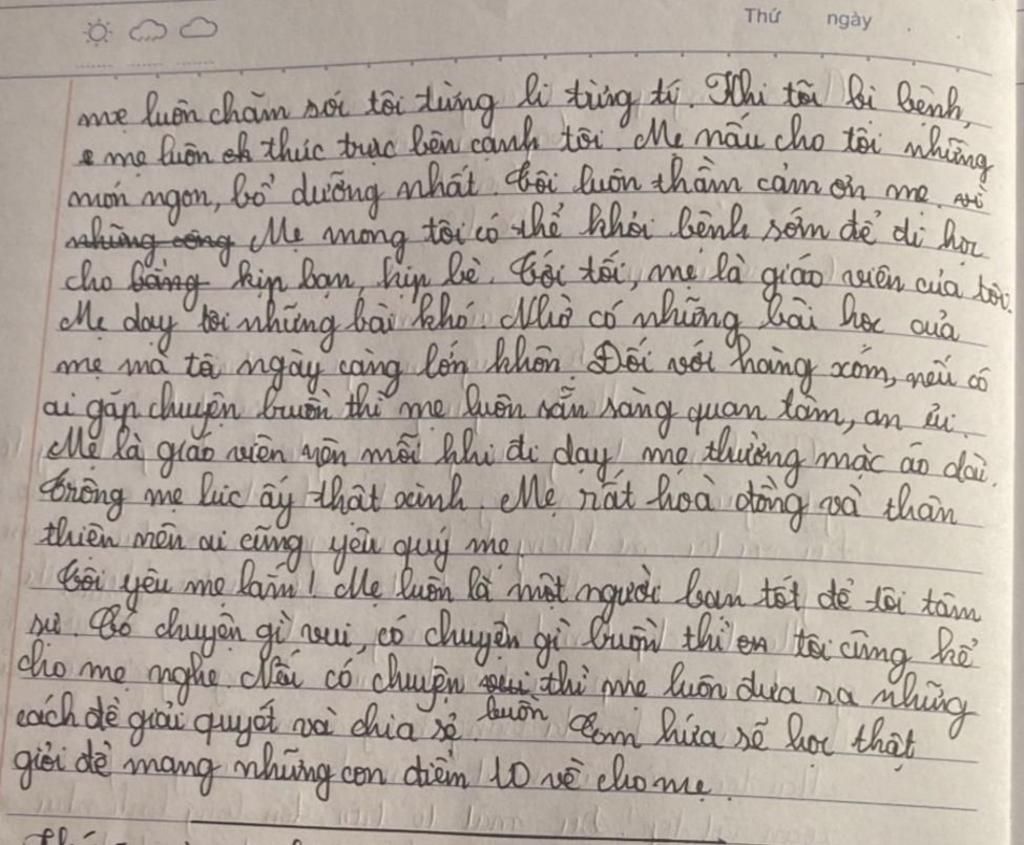 Thứ ngày
mẹ luôn chăm sói tôi từng li từng tí. Khi tôi bị bệnh,
mẹ luôn thức trực bên cạnh tôi. Mẹ nấu cho tôi những
món ngon, bổ dưỡng nhất. Tôi luôn thầm cảm ơn mẹ. vì
những công Mẹ mong tôi có thể khỏi bệnh sớm để đi học
cho bằng kịp bạn, kịp bè. Tối tối, mẹ là giáo viên của tôi.
Mẹ dạy tôi những bài khó. Nhờ có những bài học của
mẹ mà tô ngày càng lớn khôn. Đối với hàng xóm, nếu có
ai gặp chuyện buồn thì mẹ luôn sẵn sàng quan tâm, an ủi.
Mẹ là giáo viên nên mỗi khi đi dạy mẹ thường mặc áo dài.
Trông mẹ lúc ấy thật xinh. Mẹ rất hoà đồng và thân
thiện nên ai cũng yêu quý mẹ.
Tôi yêu mẹ lắm! Mẹ luôn là một người bạn tốt để tôi tâm
sự. Có chuyện gì vui, có chuyện gì buồn thì em tôi cũng kể
cho mẹ nghe. Nếu có chuyện vui thì mẹ luôn đưa ra những
buồn
cách để giải quyết và chia sẻ. Com hứa sẽ học thật
giỏi để mang những con điểm 10 về cho mẹ.